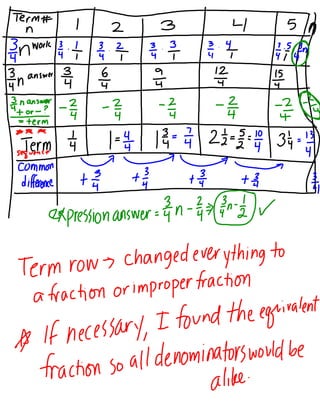 Term # n 1 2 3 4 5
3/4 n work 3/4 · 1/1 3/4 · 2/1 3/4 · 3/1 3/4 · 4/1 3/4 · 5/1
3/4 n answer 3/4 6/4 9/4 12/4 15/4
3/4 n answer + or - ? = term -2/4 -2/4 -2/4 -2/4 -2/4
*** Term 1/4 1 = 4/4 1 3/4 = 7/4 2 1/2 = 5/2 = 10/4 3 1/4 = 13/4
Common difference +3/4 +3/4 +3/4 +3/4
Expression answer = 3/4 n - 2/4 ⇒ 3/4 n - 1/2 ✓
Term row → changed everything to
a fraction or improper fraction
If necessary, I found the equivalent
fraction so all denominators would be
alike.